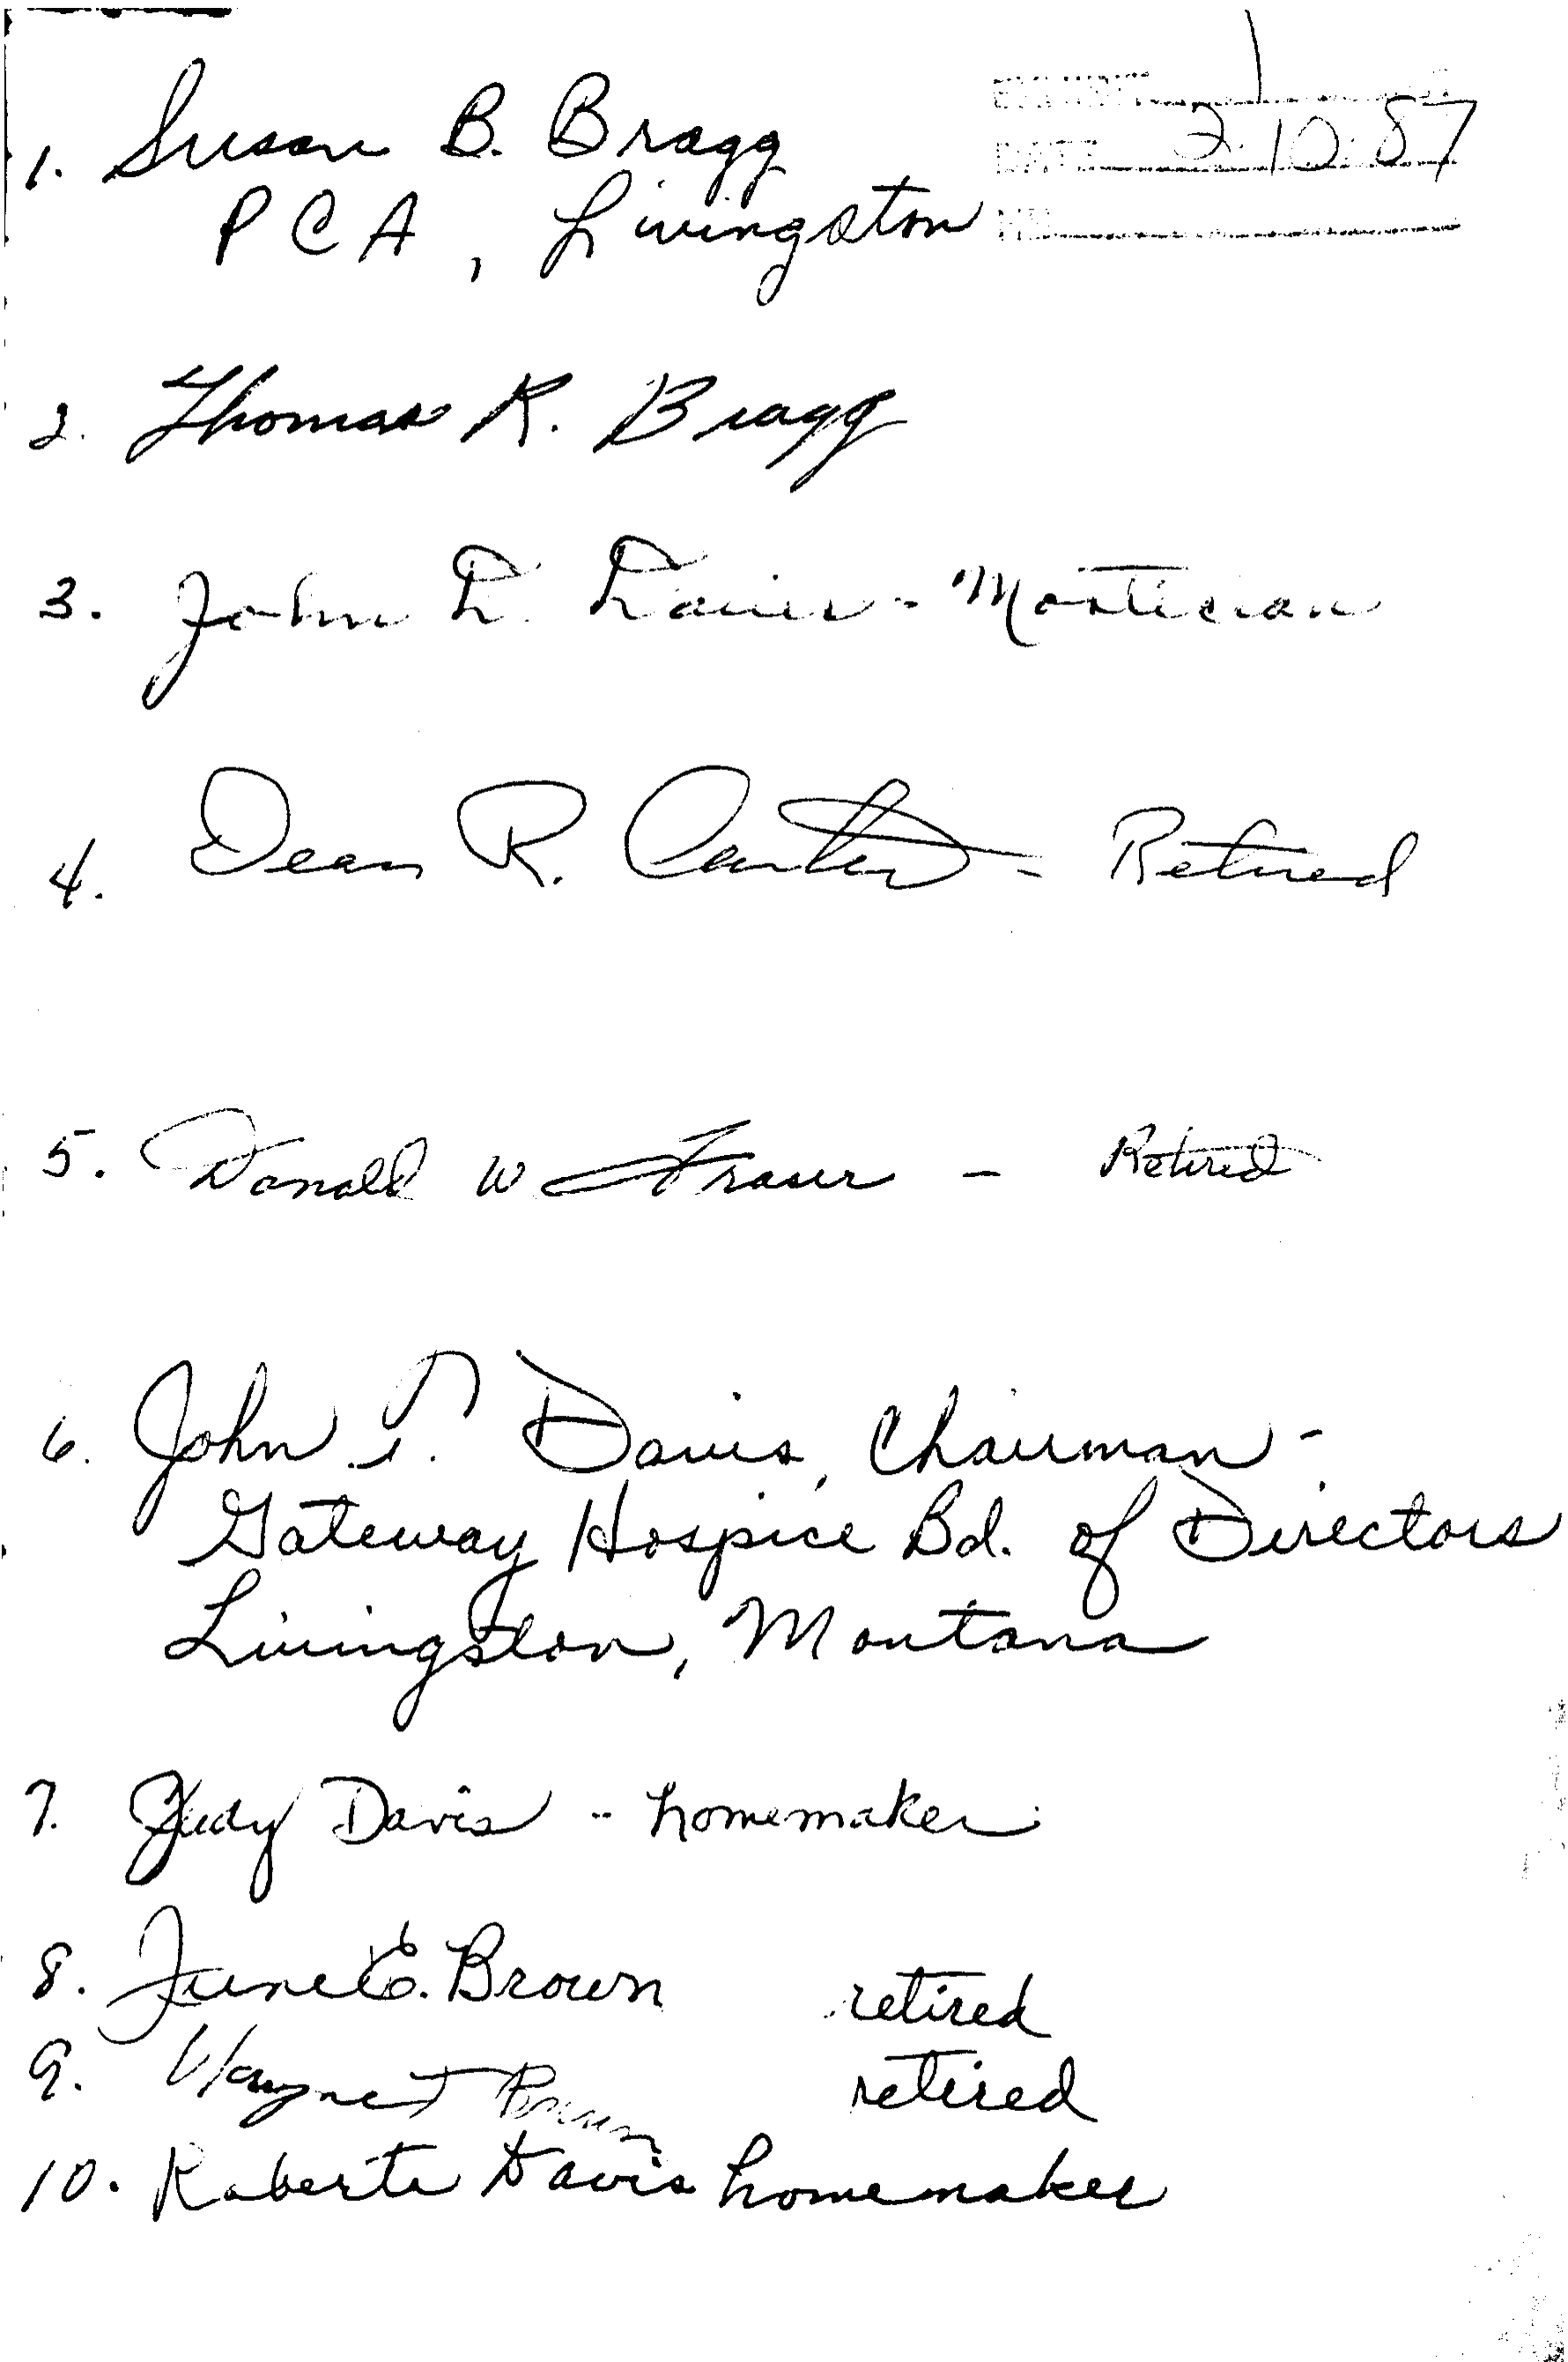 1. Susan B. Bragg
PCA, Livingston
EXHIBIT 1
DATE 2-10-87
HB
2. Thomas K. Bragg
3. John D. - Mortician
4. Dean R. Carter - Retired
5. Donald W Fraser - Retired
6. John T. Davis, Chairman -
Gateway Hospice Bd. of Directors
Livingston, Montana
7. Judy Davis - homemaker
8. June E. Brown retired
9. Wayne T Brown retired
10. Roberta Davis homemaker